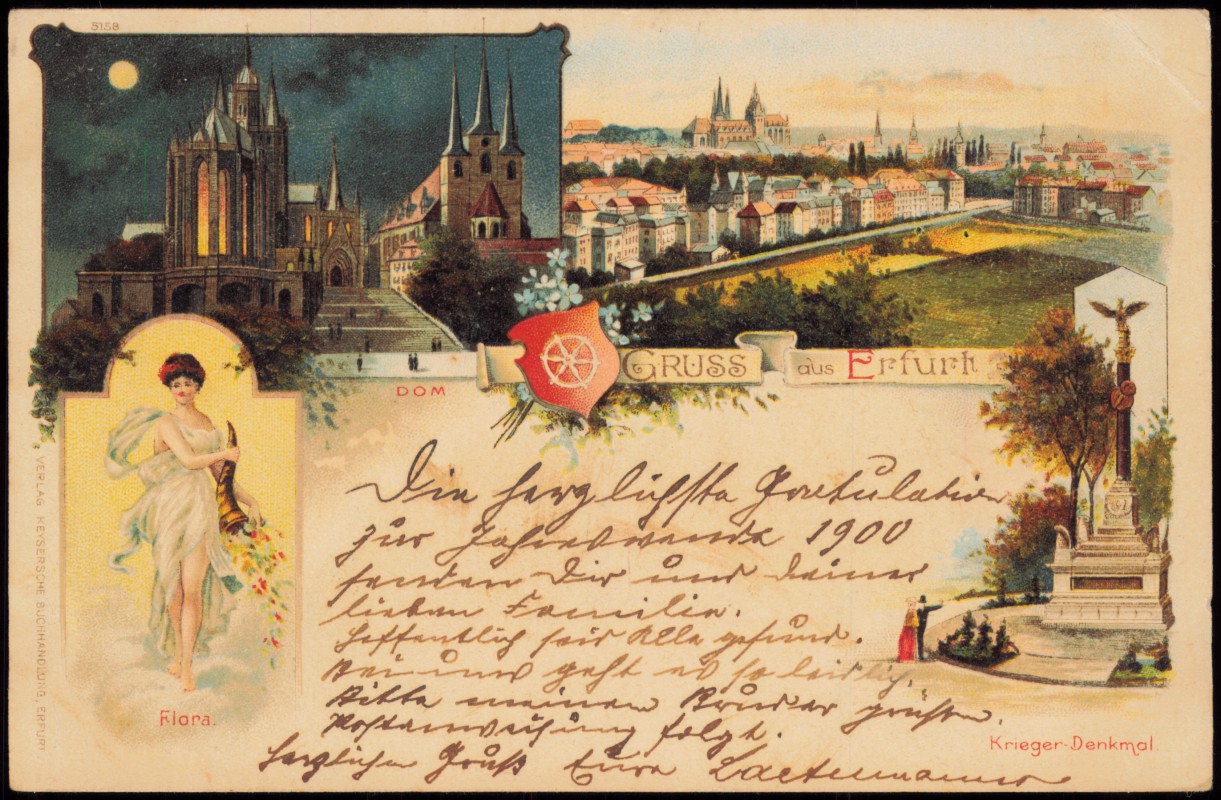 5158
DOM
GRUSS aus Erfurt
Flora.
Krieger-Denkmal.
VERLAG KEYSERSCHE BUCHHANDLUNG, ERFURT
Die herzlichste Gratulation
zur Jahreswende 1900
senden Dir und Deiner
lieben Familie.
Hoffentlich seid Alle gesund.
Bei uns geht es so leidlich.
Bitte meinen Bruder grüßen.
Postanweisung folgt.
Herzlichen Gruß Eure